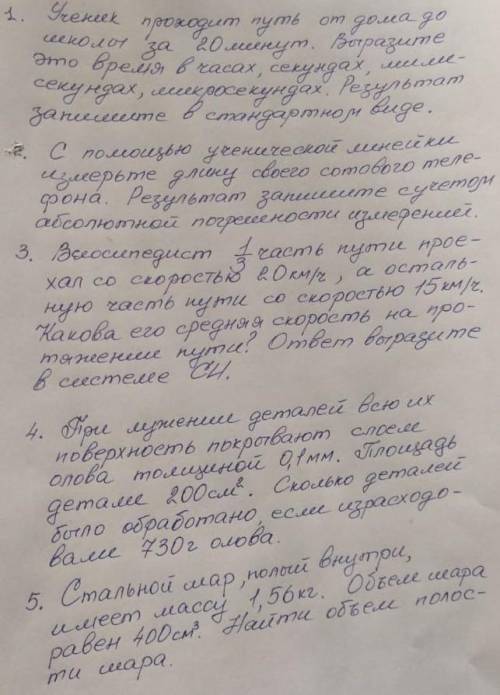 1. Ученик проходит путь от дома до
школы за 20 минут. Выразите
это время в часах, секундах, мили-
секундах, микросекундах. Результат
запишите в стандартном виде.
2. С помощью ученической линейки
измерьте длину своего сотового теле-
фона. Результат запишите с учетом
абсолютной погрешности измерений.
3. Велосипедист 1/3 часть пути прое-
хал со скоростью 20 км/ч, а осталь-
ную часть пути со скоростью 15 км/ч.
Какова его средняя скорость на про-
тяжении пути? Ответ выразите
в системе СИ.
4. При лужении деталей всю их
поверхность покрывают слоем
олова толщиной 0,1 мм. Площадь
детали 200 см². Сколько деталей
было обработано, если израсходо-
вали 730 г олова.
5. Стальной шар, полый внутри,
имеет массу 1,56 кг. Объем шара
равен 400 см³. Найти объем полос-
ти шара.